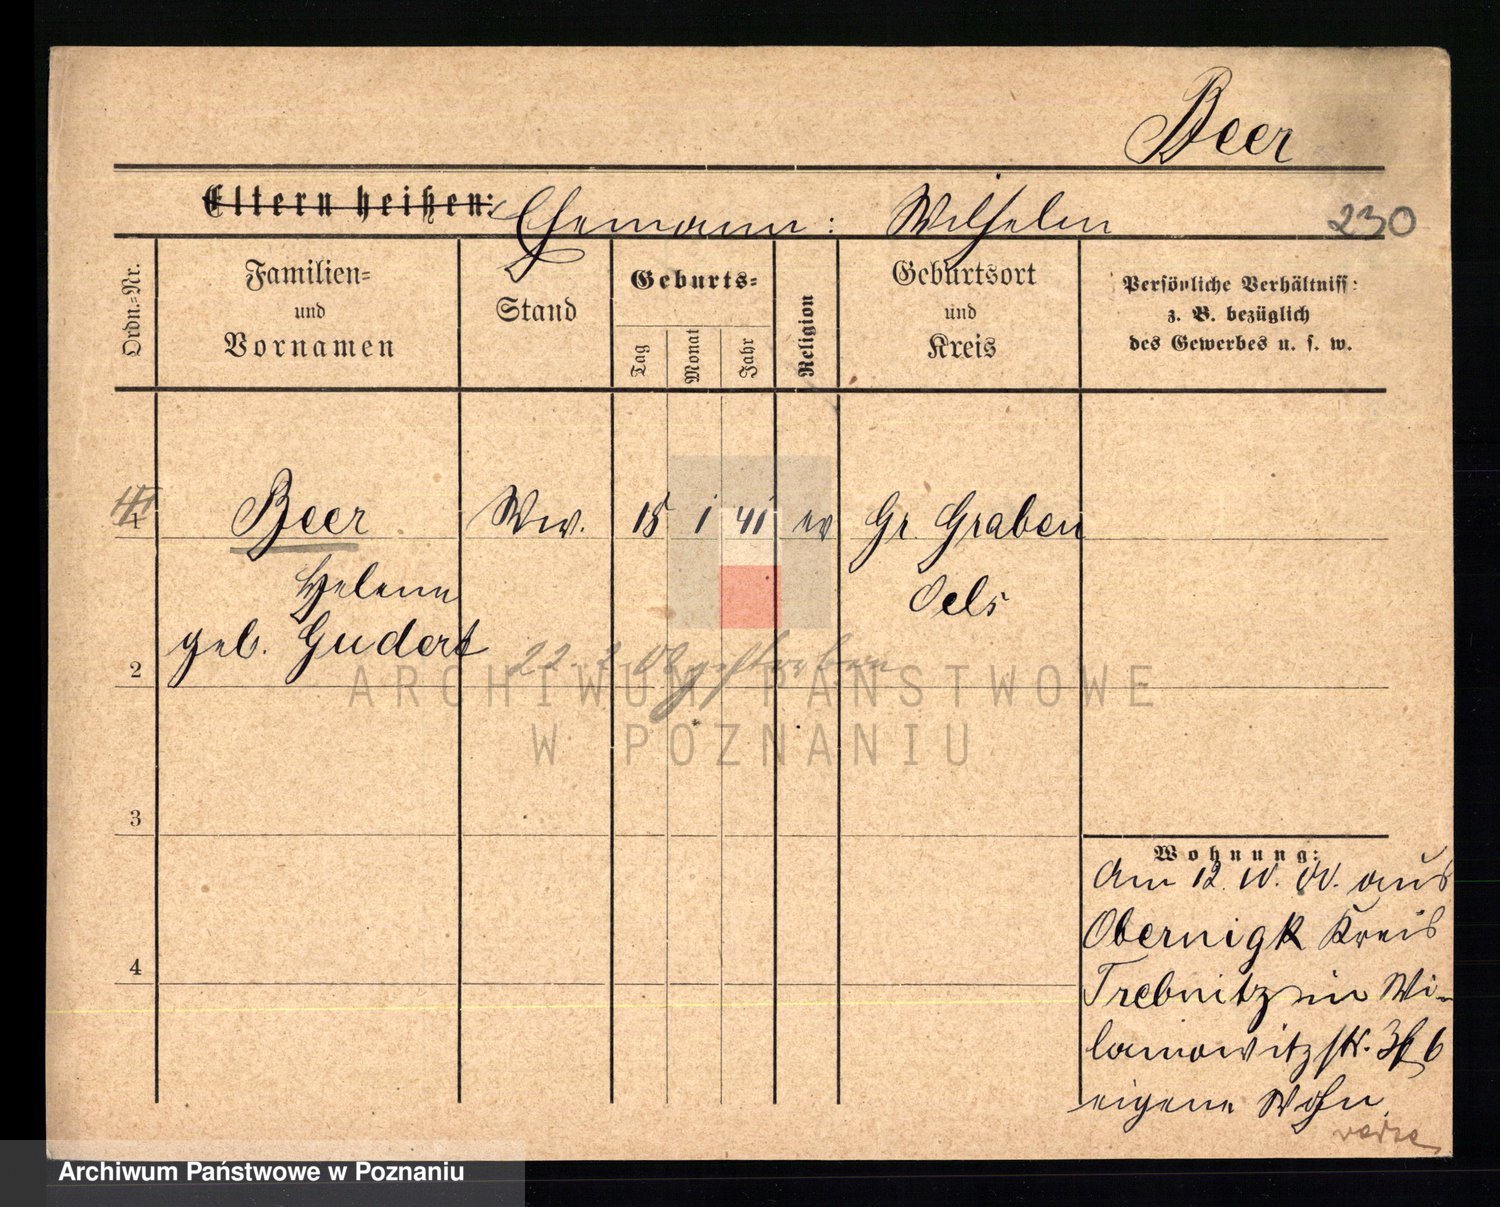 Beer
Eltern heißen: Ehemann: Wilhelm
230
Ordn.-Nr.
Familien-
und
Vornamen
Stand
Geburts-
Tag
Monat
Jahr
Religion
Geburtsort
und
Kreis
Persönliche Verhältniss:
z. B. bezüglich
des Gewerbes u. s. w.
1 Beer Ww. 15 1 41 ev Gr. Graben
Helene Oels
geb. Gudert
2 22. 2. gestorben
ARCHIWUM PAŃSTWOWE
W POZNANIU
3
Wohnung:
Am 12. 10. 00. aus
Obernigk Kreis
4
Trebnitz in Wi-
lamowitzstr. 6
eigene Wohn.
Archiwum Państwowe w Poznaniu